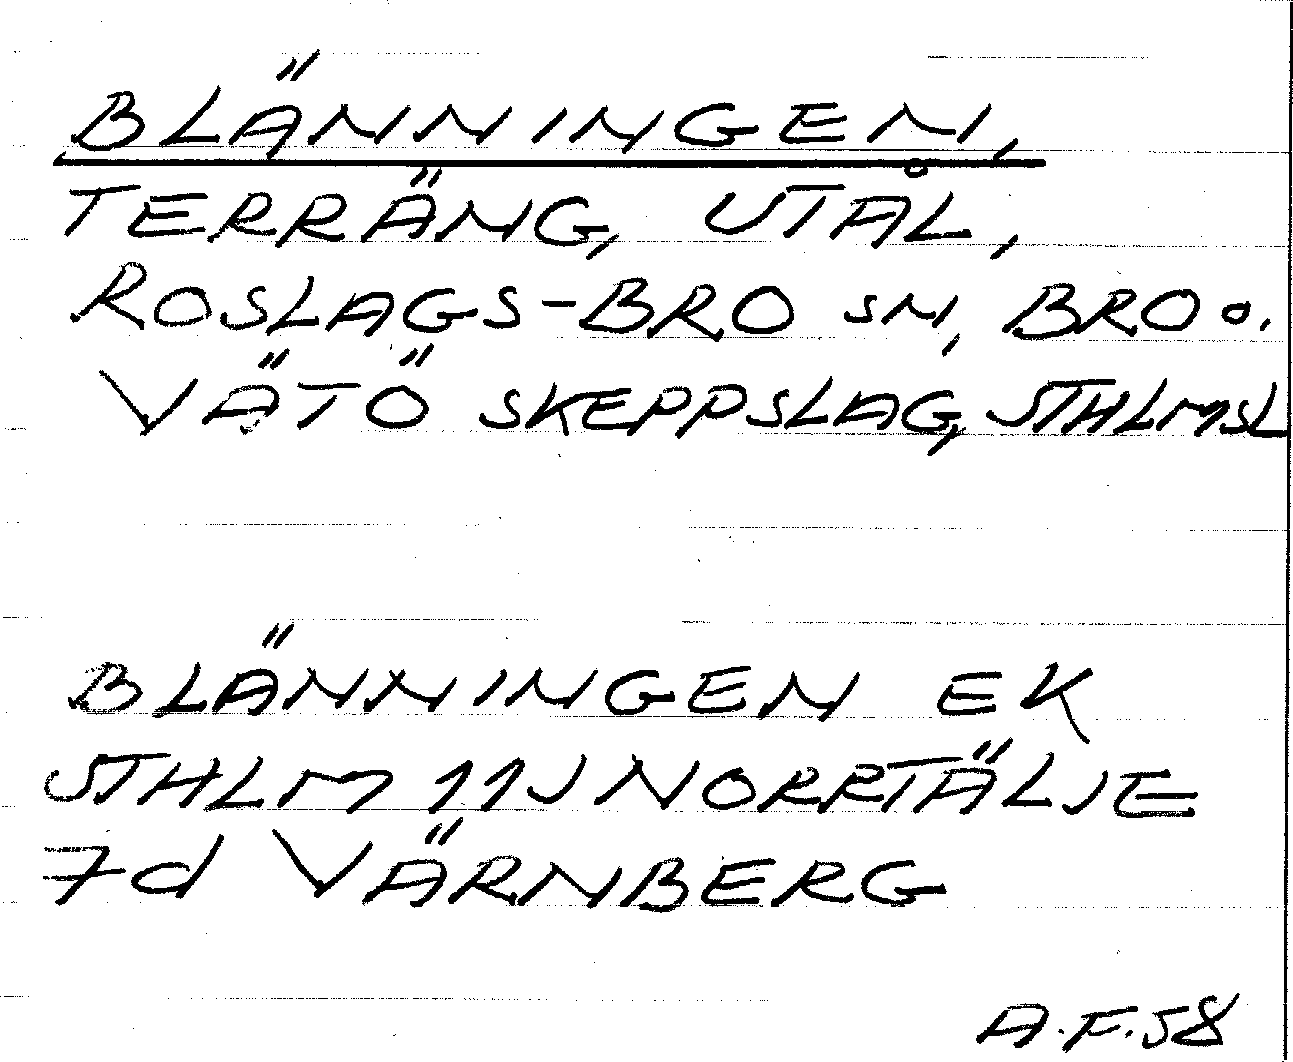 BLÄNNINGEN,
TERRÄNG, UTÅL,
ROSLAGS-BRO SN, BRO O.
VÄTÖ SKEPPSLAG, STHLMSL
BLÄNNINGEN EK
STHLM 11J NORRTÄLJE
7d VÄRNBERG
A.F.58